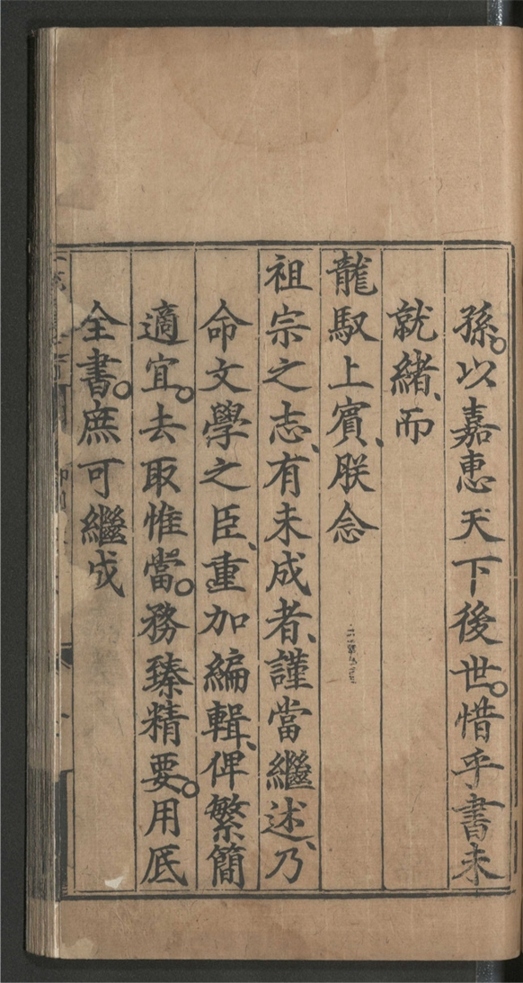 孫。以嘉惠天下後世。惜乎書未
就緒、而
龍馭上賓、朕念
祖宗之志、有未成者、謹當繼述、乃
命文學之臣、重加編輯、俾繁簡
適宜。去取惟當。務臻精要。用底
全書。庶可繼成